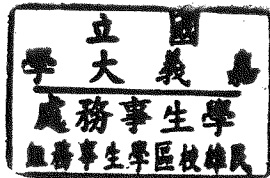 國立
嘉義大學
學生事務處
民雄校區學生事務組